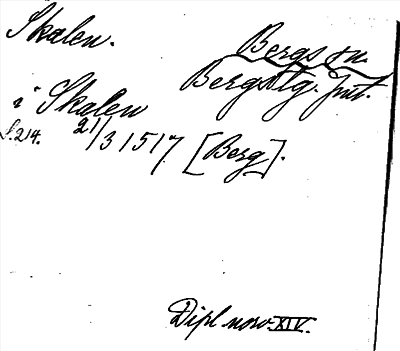 Skalen.
Bergs sn.
Bergs tg. Jmt.
i Skalen
S.214. 21/3 1517 [Berg].
Dipl norv XIV.